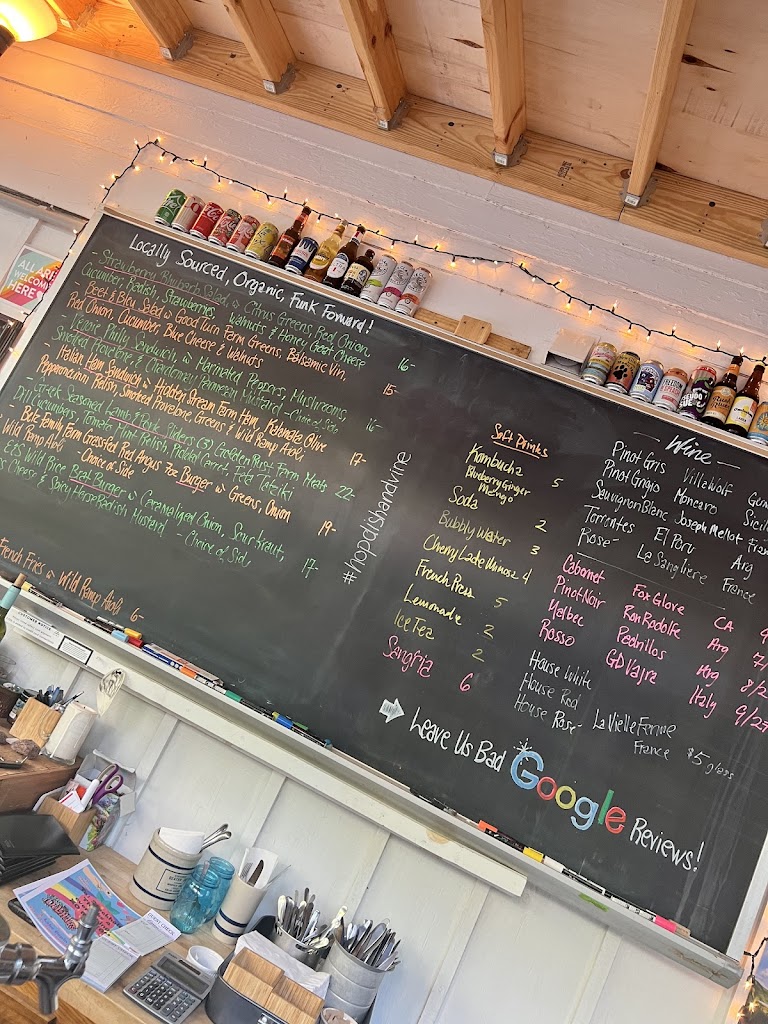 Locally Sourced, Organic, Funk Forward!
- Strawberry Rhubarb Salad Citrus Greens, Red Onion,
Cucumber, Radish, Strawberries, Walnuts & Honey Goat Cheese 16-
- Beet & Bleu Salad Good Turn Farm Greens, Balsamic Vin,
Red Onion, Cucumber, Blue Cheese & Walnuts 15-
Philly Sandwich Marinated Peppers, Mushrooms,
Smoked Provelone & Chardonnay Parmesan Mustard - Choice of Side 16
- Italian Ham Sandwich Hidden Stream Farm Ham, Kalamata Olive
Pepperoncini Relish, Smoked Provelone, Greens & Wild Ramp Aioli 17-
- Greek Seasoned Lamb & Pork Sliders (3) Golden Rust Farm Meats
Dill Cucumbers, Tomato Mint Relish, Pickled Carrot, Feta Tzatziki 22-
- Beltz Family Farm Grass-fed Red Angus Burger Greens, Onion
Wild Ramp Aioli - Choice of Side 19-
Wild Rice Brat Burger Caramelized Onion, Sour kraut,
Cheese & Spicy Horse Radish Mustard - Choice of Side 17
French Fries Wild Ramp Aioli 6-
#hopdishandvine
Soft Drinks
Kombucha 5
Blueberry Ginger
Mango
Soda 2
Bubbly Water 3
Cherry Lade Mimosa 4
French Press 5
Lemonade 2
Ice Tea 2
Sangria 6
- Wine -
Pinot Gris Villa Wolf
Pinot Grigio Moncaro
Sauvignon Blanc Joseph Mellot
Torrentes El Poru Arg
Rose - La Sangliere France
Cabernet Fox Glove CA
Pinot Noir Ron Rodolfe Arg
Malbec Pednillos Arg 8/2
Rosso GD Vajra Italy 9/27
House White
House Red
House Rose - La Vielle Ferme
France $5 glass
Leave Us Bad Google Reviews!
ALL ARE
WELCOME
HERE